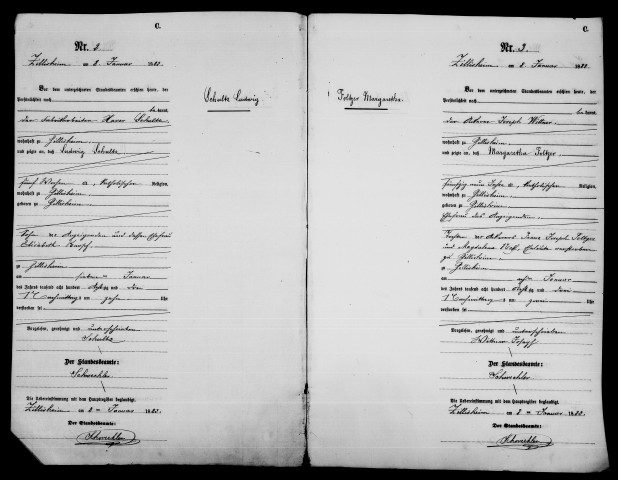 C.
Nr. 2
Zillisheim am 8. Januar 1883.
Vor dem unterzeichneten Standesbeamten erschien heute, der
Persönlichkeit nach
be kannt,
der Fabrikarbeiter Xaver Schultz
wohnhaft zu Zillisheim
und zeigte an, daß Ludwig Schultz
fünf Wochen alt, katholischer Religion,
wohnhaft zu Zillisheim
geboren zu Zillisheim
Sohn des Anzeigenden und dessen Ehefrau
Elisabeth
zu Zillisheim
am Januar
des Jahres tausend acht hundert achtzig und drei
Nachmittags um zehn Uhr
verstorben sei
Vorgelesen, genehmigt und unterschrieben
Schultz
Der Standesbeamte:
Schwehler
Die Uebereinstimmung mit dem Hauptregister beglaubigt.
Zillisheim am 8. ten Januar 1883.
Der Standesbeamte:
Schwehler
Schultz Ludwig
Foltzer Margaretha
C.
Nr. 3.
Zillisheim am 8. Januar 1883.
Vor dem unterzeichneten Standesbeamten erschien heute, der
Persönlichkeit nach
be kannt,
der Ackerer Joseph Wittmer
wohnhaft zu Zillisheim
und zeigte an, daß Margaretha Foltzer
fünfzig neun Jahre alt, katholischer Religion,
wohnhaft zu Zillisheim
geboren zu Zillisheim
Ehefrau des Anzeigenden
Tochter des Ackerers Franz Joseph Foltzer
und Magdalena Eheleute verstorben
zu Zillisheim
zu Zillisheim
am Januar
des Jahres tausend acht hundert achtzig und drei
Nachmittags um zwei Uhr
verstorben sei
Vorgelesen, genehmigt und unterschrieben
Wittmer Joseph
Der Standesbeamte:
Schwehler
Die Uebereinstimmung mit dem Hauptregister beglaubigt.
Zillisheim am 8. ten Januar 1883.
Der Standesbeamte:
Schwehler